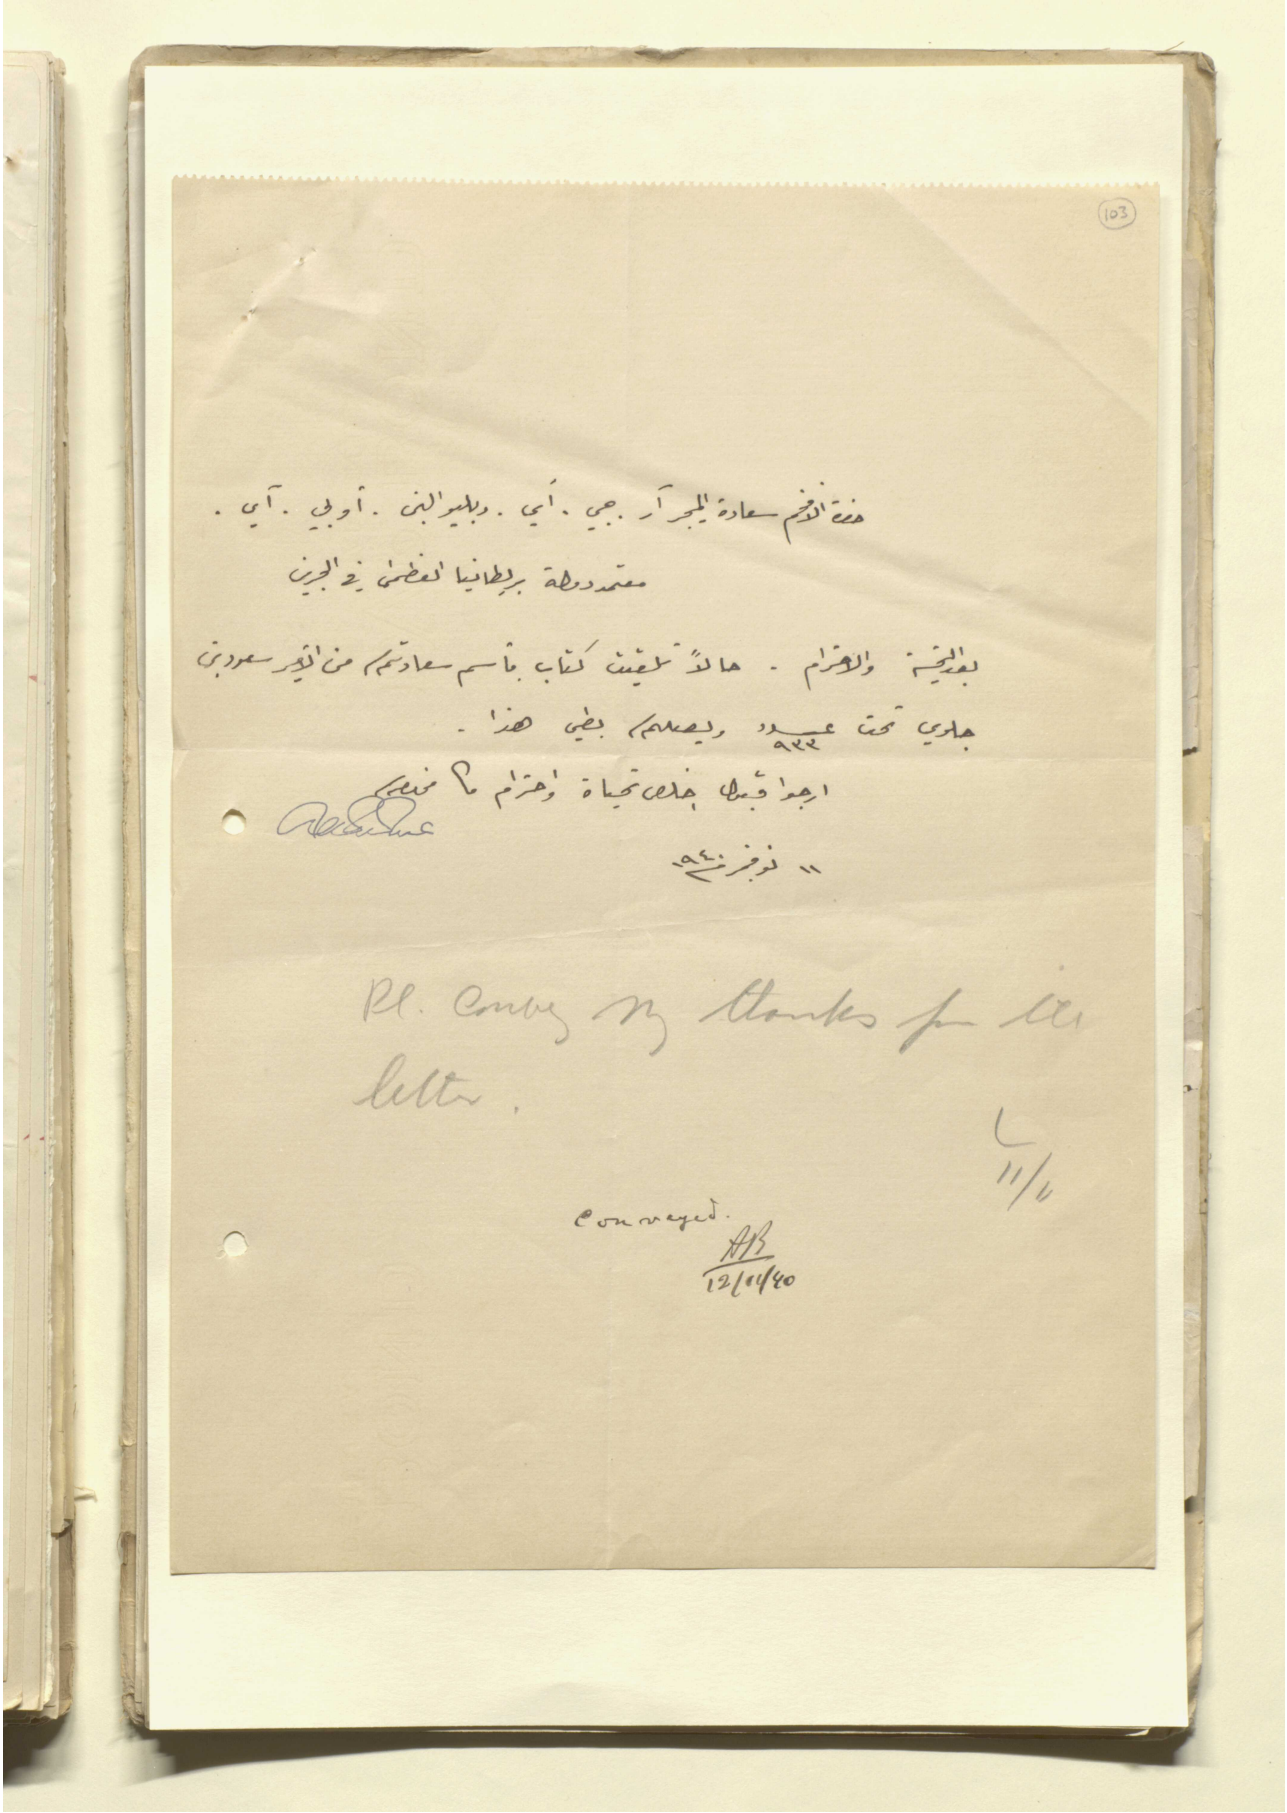 103
حضرة الافخم سعادة الميجر آر. جي. أي. دبليو البن. أو بي. آي.
معتمد دولة بريطانيا العظمى في البحرين
بعد التحية والاحترام. حالاً تلقيت كتاب باسم سعادتكم من الامير سعود بن
جلوي تحت عدد ٩٣٣ ويصلكم بطي هذا.
ارجوا قبول خالص تحياة واحترام
١١ نوفمبر سنة ١٩٤٠
Pl. convey my thanks for the
letter.
11/11
Conveyed.
AR
12/11/40